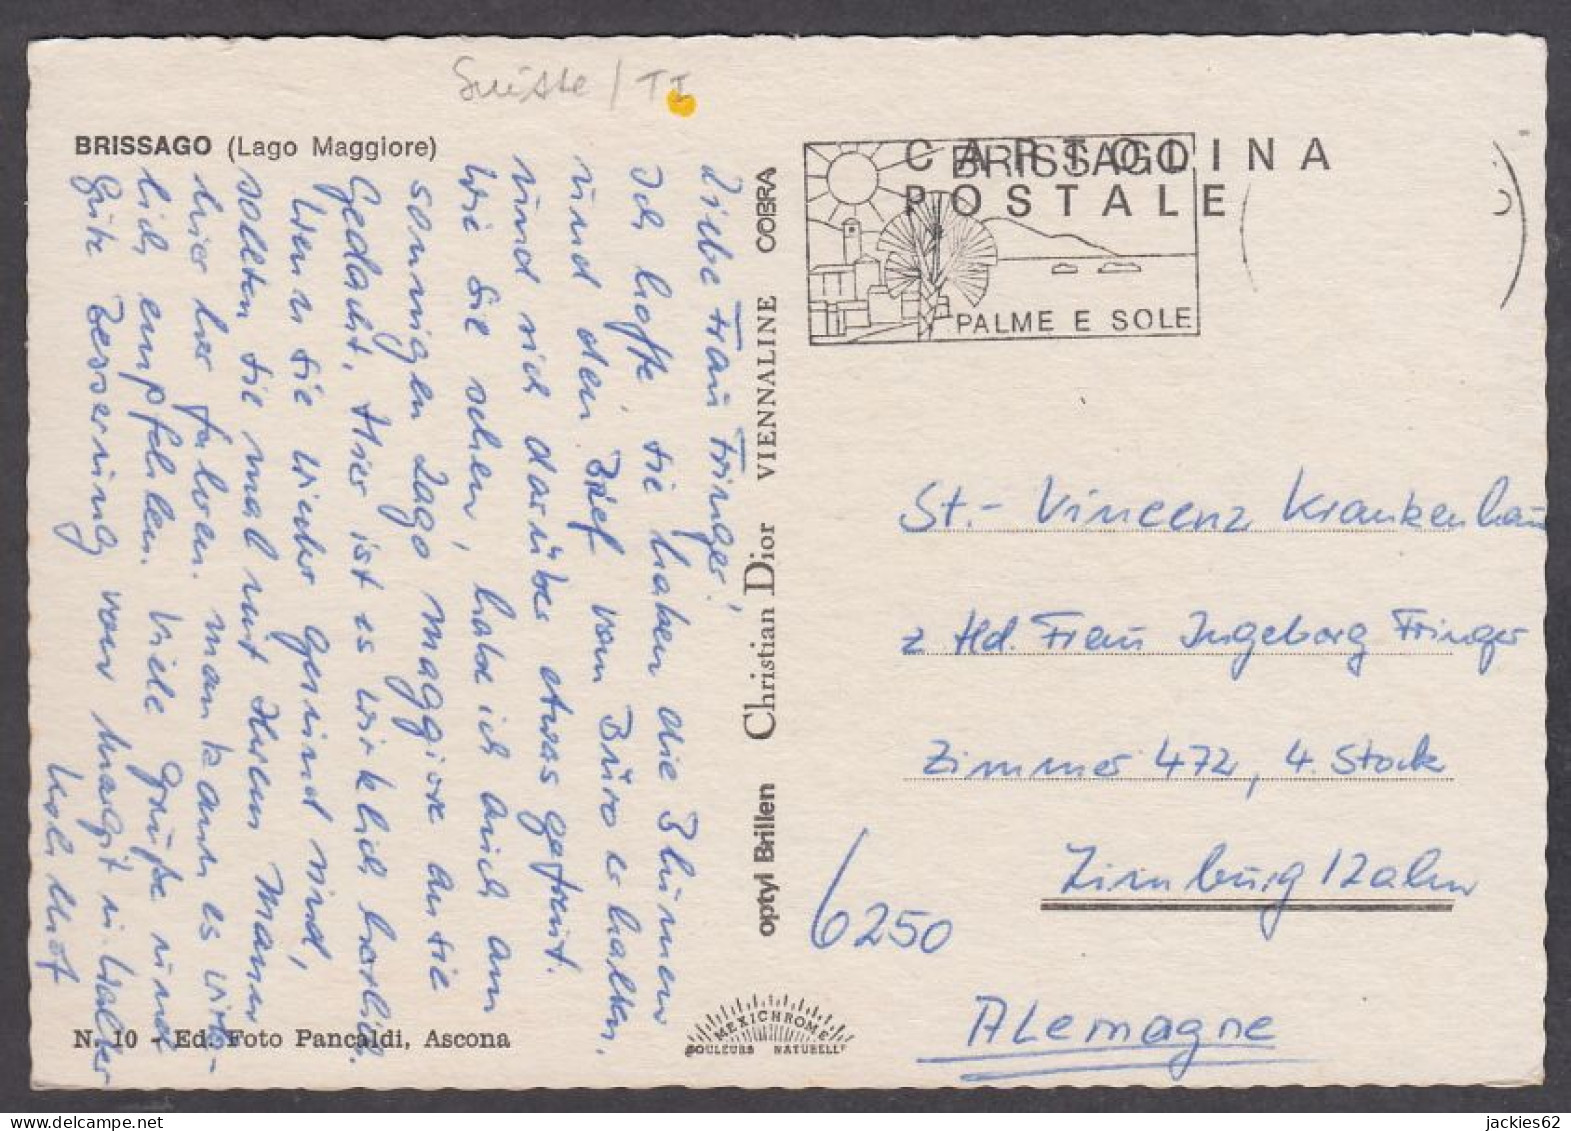 Suisse / TI
BRISSAGO (Lago Maggiore)
CARTOLINA
POSTALE
BRISSAGO
PALME E SOLE
Liebe Frau Fringer!
Ich hoffe Sie haben die Blumen
und den Brief vom Büro erhalten,
und sich darüber etwas gefreut.
Wie Sie sehen, habe ich auch am
sonnigen Lago Maggiore an Sie
Gedacht. Hier ist es wirklich herrlich.
Wenn Sie wieder Gesund sind,
sollten Sie mal mit Ihrem Mann
hier her fahren. Man kann es wirk-
lich empfehlen. Viele Grüße und
Gute Besserung von Margit u. Walter
optyl Brillen Christian Dior VIENNALINE COBRA
St.- Vincenz Krankenhau
z Hd. Frau Ingeborg Fringer
Zimmer 472, 4. Stock
6250
Limburg / Lahn
Alemagne
N. 10 - Ed. Foto Pancaldi, Ascona
MEXICHROME
COULEURS NATURELLES
jackies62